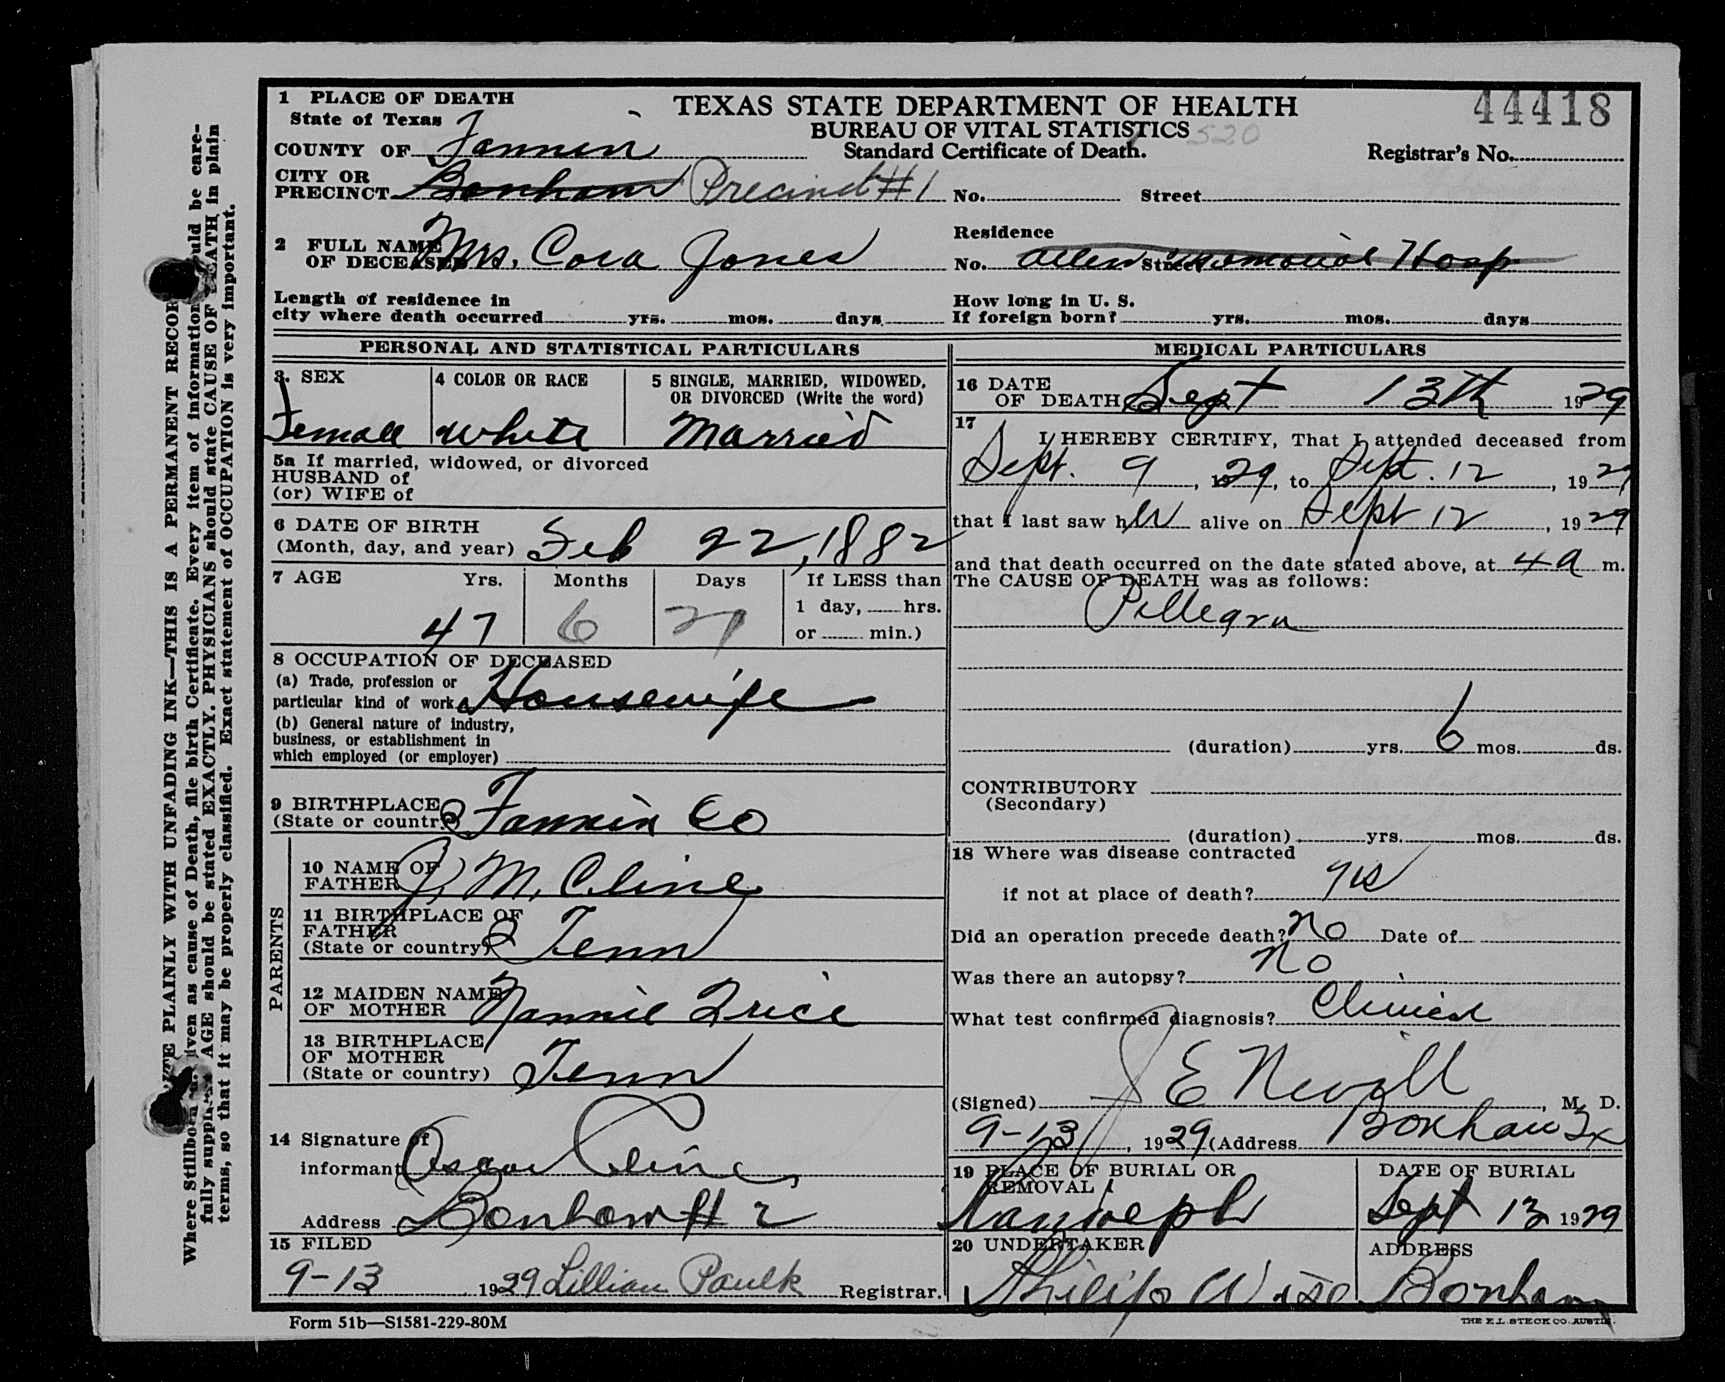 1 PLACE OF DEATH
State of Texas
TEXAS STATE DEPARTMENT OF HEALTH
44418
BUREAU OF VITAL STATISTICS 520
COUNTY OF Fannin
Standard Certificate of Death.
Registrar's No.
CITY OR
PRECINCT Bonham Precinct #1 No. Street
2 FULL NAME
OF DECEASED Mrs. Cora Jones
Residence
No. Allen Memorial Hosp Street
Length of residence in
city where death occurred yrs. mos. days
How long in U. S.
If foreign born? yrs. mos. days
PERSONAL AND STATISTICAL PARTICULARS
3. SEX
Female
4 COLOR OR RACE
White
5 SINGLE, MARRIED, WIDOWED,
OR DIVORCED (Write the word)
Married
5a If married, widowed, or divorced
HUSBAND of
(or) WIFE of
6 DATE OF BIRTH
(Month, day, and year) Feb 22, 1882
7 AGE Yrs. Months Days If LESS than
1 day, hrs.
or min.)
47 6 21
8 OCCUPATION OF DECEASED
(a) Trade, profession or
particular kind of work Housewife
(b) General nature of industry,
business, or establishment in
which employed (or employer)
9 BIRTHPLACE
(State or country) Fannin Co
PARENTS
10 NAME OF
FATHER J. M. Cline
11 BIRTHPLACE OF
FATHER
(State or country) Tenn
12 MAIDEN NAME
OF MOTHER Nannie Price
13 BIRTHPLACE
OF MOTHER
(State or country) Tenn
14 Signature of
informant Oscar Cline
Address Bonham # 2
15 FILED
9-13 1929 Lillian Paulk Registrar.
MEDICAL PARTICULARS
16 DATE
OF DEATH Sept 13th 1929
17
I HEREBY CERTIFY, That I attended deceased from
Sept. 9, 1929, to Sept. 12, 1929
that I last saw her alive on Sept 12, 1929
and that death occurred on the date stated above, at 4 a m.
The CAUSE OF DEATH was as follows:
Pellegra
(duration) yrs. 6 mos. ds.
CONTRIBUTORY
(Secondary)
(duration) yrs. mos. ds.
18 Where was disease contracted
if not at place of death? yes
Did an operation precede death? No Date of
Was there an autopsy? No
What test confirmed diagnosis? Clinical
(Signed) J E Nevill, M. D.
9-13, 1929 (Address Bonham Tx
19 PLACE OF BURIAL OR
REMOVAL
Randolph
DATE OF BURIAL
Sept 13 1929
20 UNDERTAKER
Philip Wise
ADDRESS
Bonham
Form 51b—S1581-229-80M
THE E.L. STECK CO. AUSTIN.
WRITE PLAINLY WITH UNFADING INK—THIS IS A PERMANENT RECORD
Where Stillborn is given as cause of Death, file birth Certificate. Every item of information should be care-
fully supplied. AGE should be stated EXACTLY. PHYSICIANS should state CAUSE OF DEATH in plain
terms, so that it may be properly classified. Exact statement of OCCUPATION is very important.